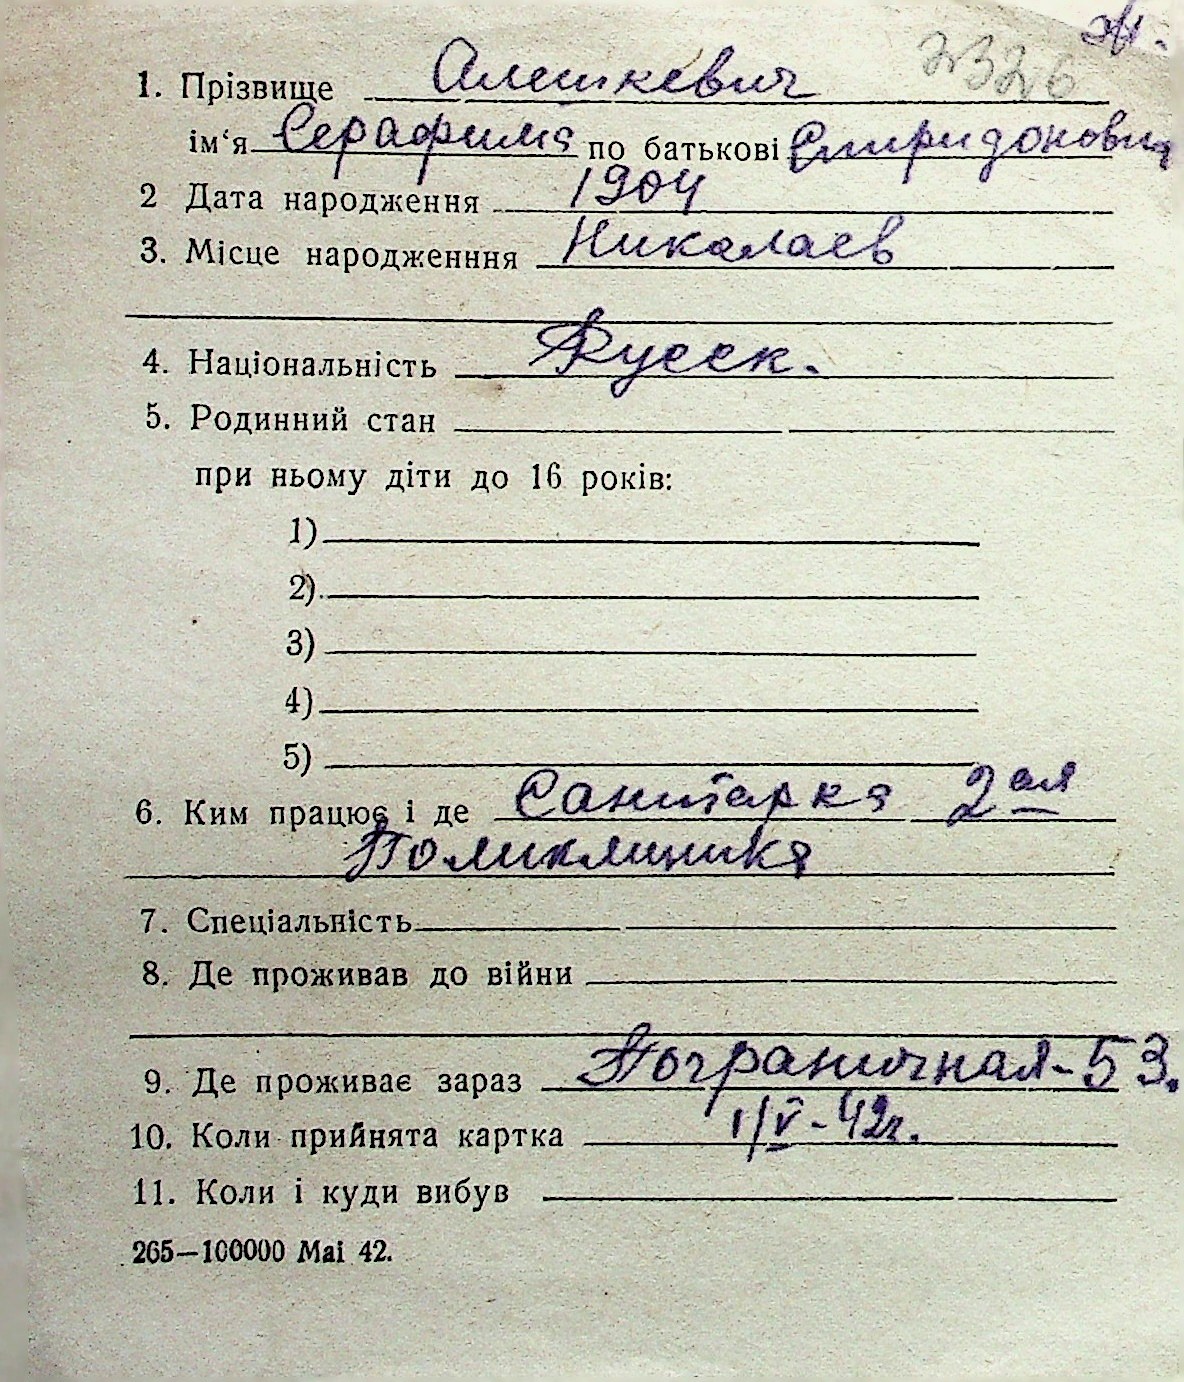 2326
1. Прізвище Алешкевич
ім‘я Серафима по батькові Спиридоновна
2 Дата народження 1904
3. Місце народженння Никалаев
4. Національність Русск.
5. Родинний стан
при ньому діти до 16 років:
1)
2)
3)
4)
5)
6. Ким працює і де Санитарка 2ая
Поликлиника
7. Спеціальність
8. Де проживав до війни
9. Де проживає зараз Пограничная-53.
10. Коли прийнята картка 1/V-42г.
11. Коли і куди вибув
265—100000 Маі 42.